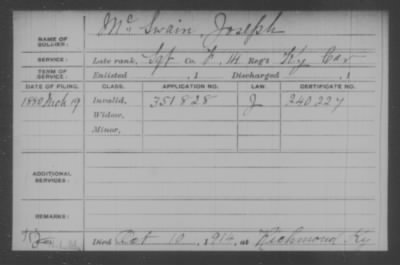 NAME OF SOLDIER: Mc Swain, Joseph
SERVICE: Late rank, Sgt Co. F, 14 Reg't Ky Cav
TERM OF SERVICE: Enlisted , 1 Discharged , 1
DATE OF FILING. CLASS. APPLICATION NO. LAW. CERTIFICATE NO.
1880 Mch 19 Invalid, 351828 J 240227
Widow,
Minor,
ADDITIONAL SERVICES:
REMARKS:
Died Oct 10, 1914, at Richmond Ky